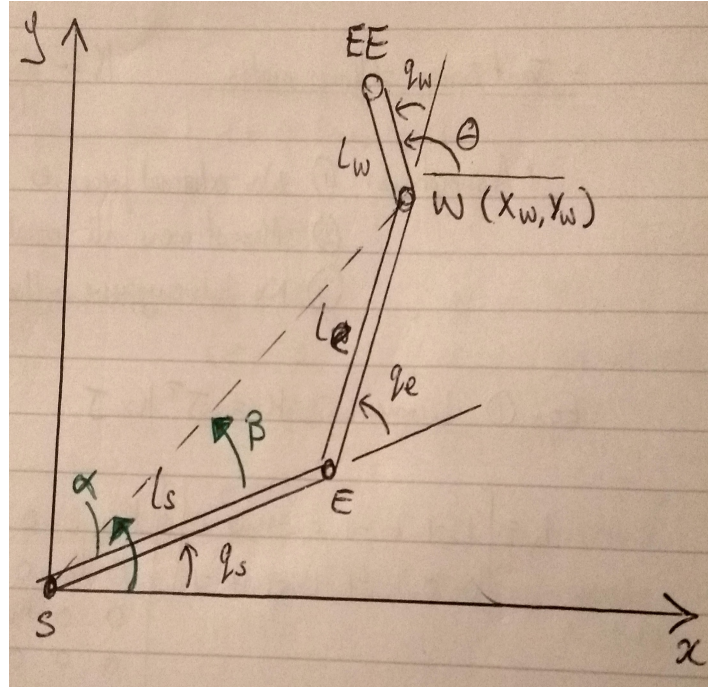 y
EE
qw
θ
lw
W (Xw, Yw)
le
qe
β
α
ls
E
qs
S
x